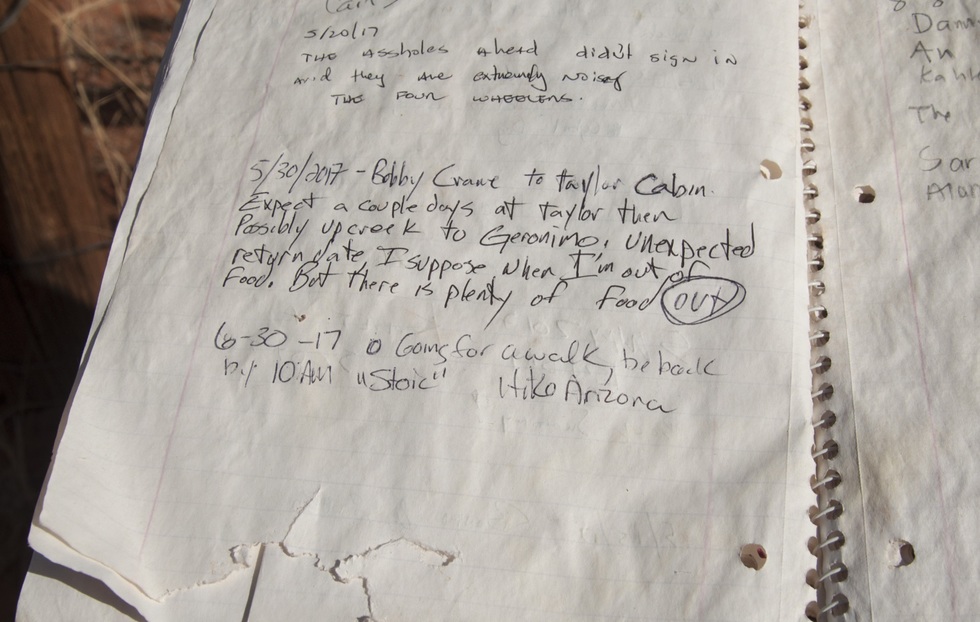 5/20/17
THE Assholes Ahead didn't sign in
and they are extremely Noisey
THE FOUR WHEELERS.
5/30/2017 - Bobby Crane to taylor Cabin.
Expect a couple days at taylor then
Possibly up creek to Geronimo. Unexpected
return date, I suppose when I'm out of
Food. But there is plenty of food out
6-30-17 Going for a walk, be back
by 10 AM "Stoic" Hike Arizona
An
The